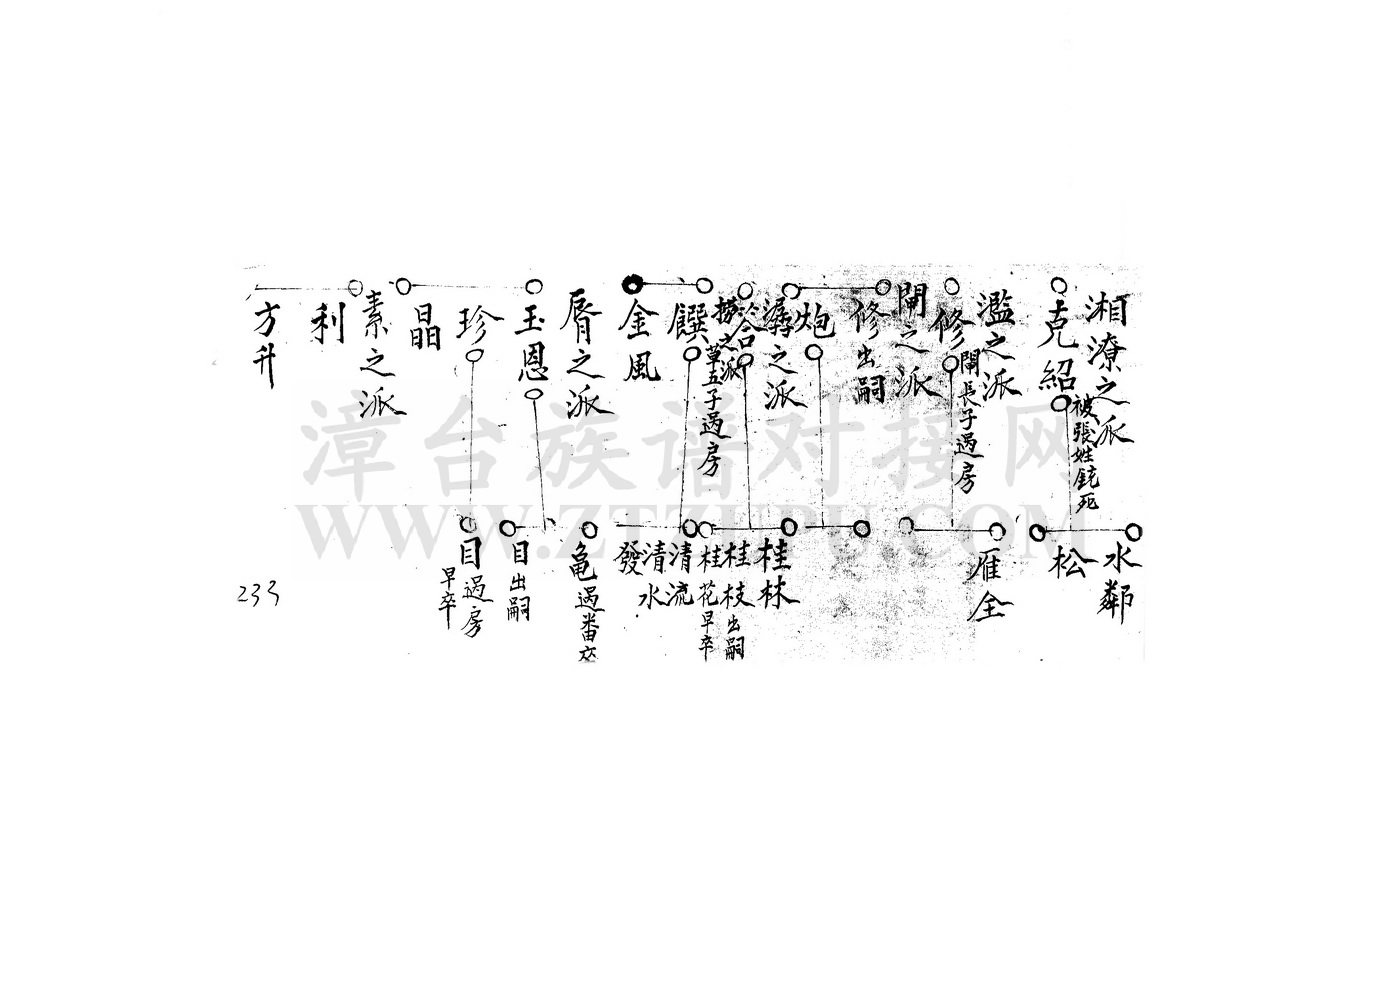 湘潦之派
克紹
被張姓銃死
水鄰
松
濫之派
修
閘長子過房
雁全
閘之派
修出嗣
炮
潺之派
桂林
桂枝出嗣
桂花早卒
撈之派
草五子過房
饌
清流
清水
發
金風
唇之派
玉恩
龜過番卒
目出嗣
珍
目過房
早卒
晶
素之派
利
方升
233
漳台族谱对接网
WWW.ZTZUPU.COM